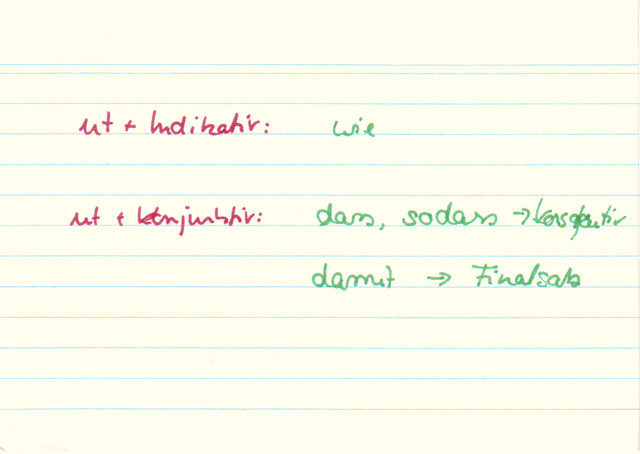 ut + Indikativ: wie
ut + Konjunktiv: dass, sodass → konsekutiv
damit → Finalsatz